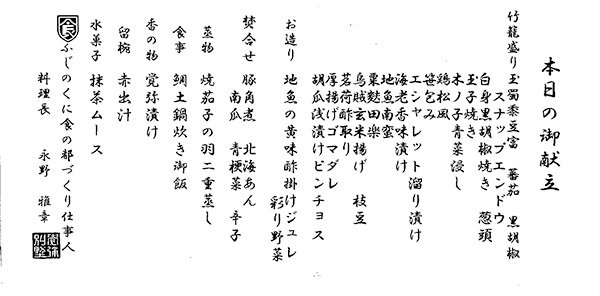 本日の御献立
竹籠盛り 玉蜀黍豆富 蕃茄 黒胡椒
スナップエンドウ
白身黒胡椒焼き 葱頭
玉子焼き
木ノ子青菜浸し
鶏松風
笹包み
エシャレット溜り漬け
海老香味漬け
地魚南蛮
粟麩田楽
烏賊玄米揚げ 枝豆
茗荷酢取り
厚揚げゴマダレ
胡瓜浅漬けピンチョス
お造り 地魚の黄味酢掛けジュレ
彩り野菜
焚合せ 豚角煮 北海あん
南瓜 青梗菜 辛子
蒸物 焼茄子の羽二重蒸し
食事 鯛土鍋炊き御飯
香の物 覚弥漬け
留椀 赤出汁
水菓子 抹茶ムース
食 ふじのくに食の都づくり仕事人
料理長 永野 雅幸